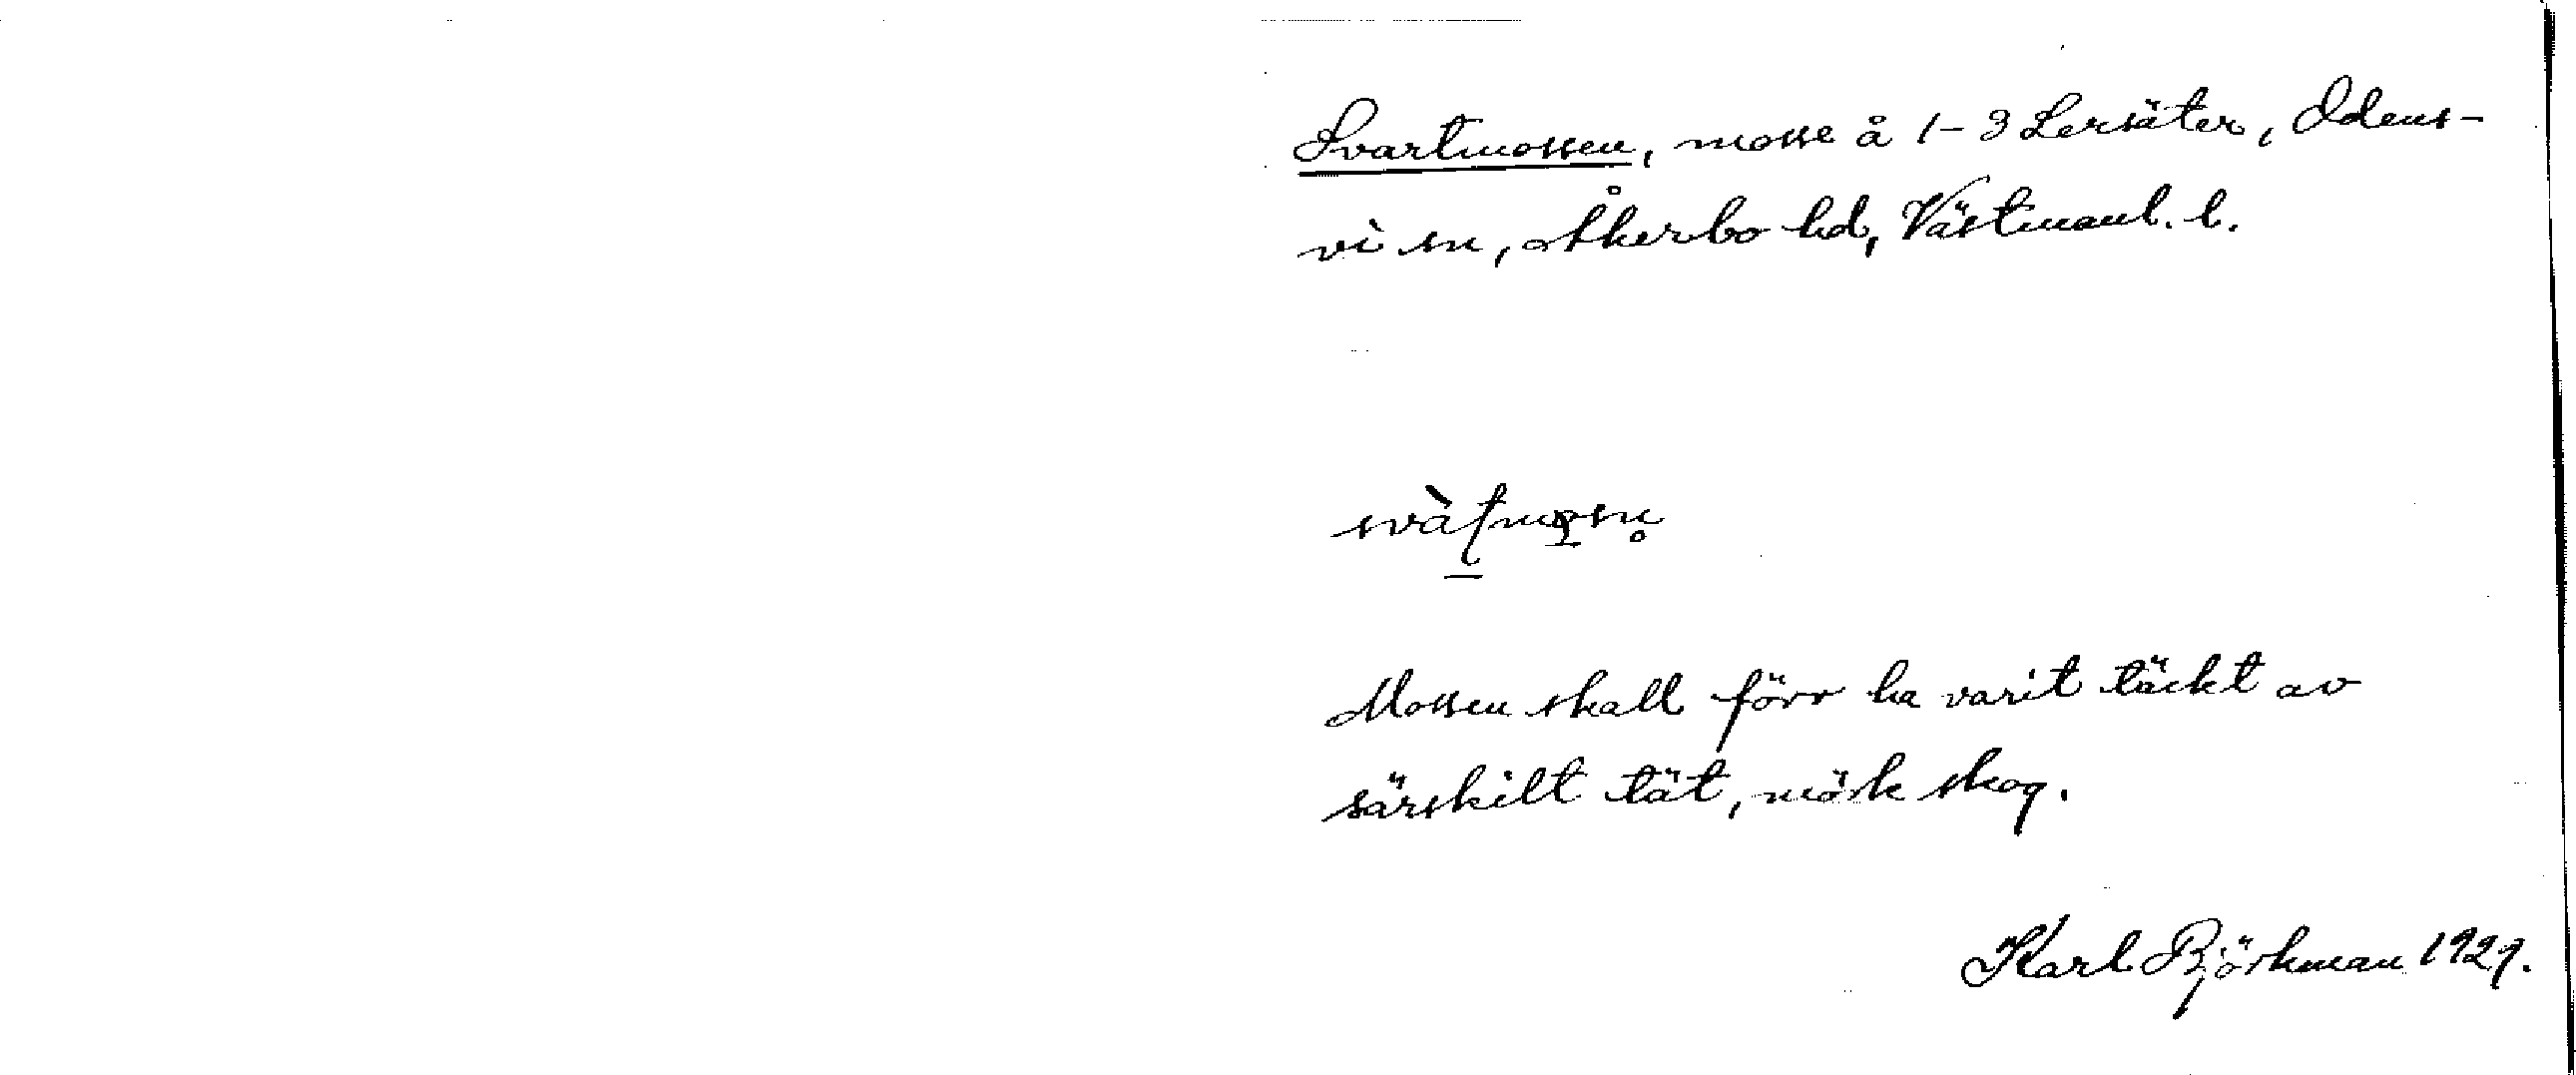 Svartmossen, mosse å 1-3 Lersäter, Odens-
vi sn, Åkerbo hd, Västmanl. l.
Mossen skall förr ha varit täckt av
särskilt tät, mörk skog.
Karl Björkman 1929.